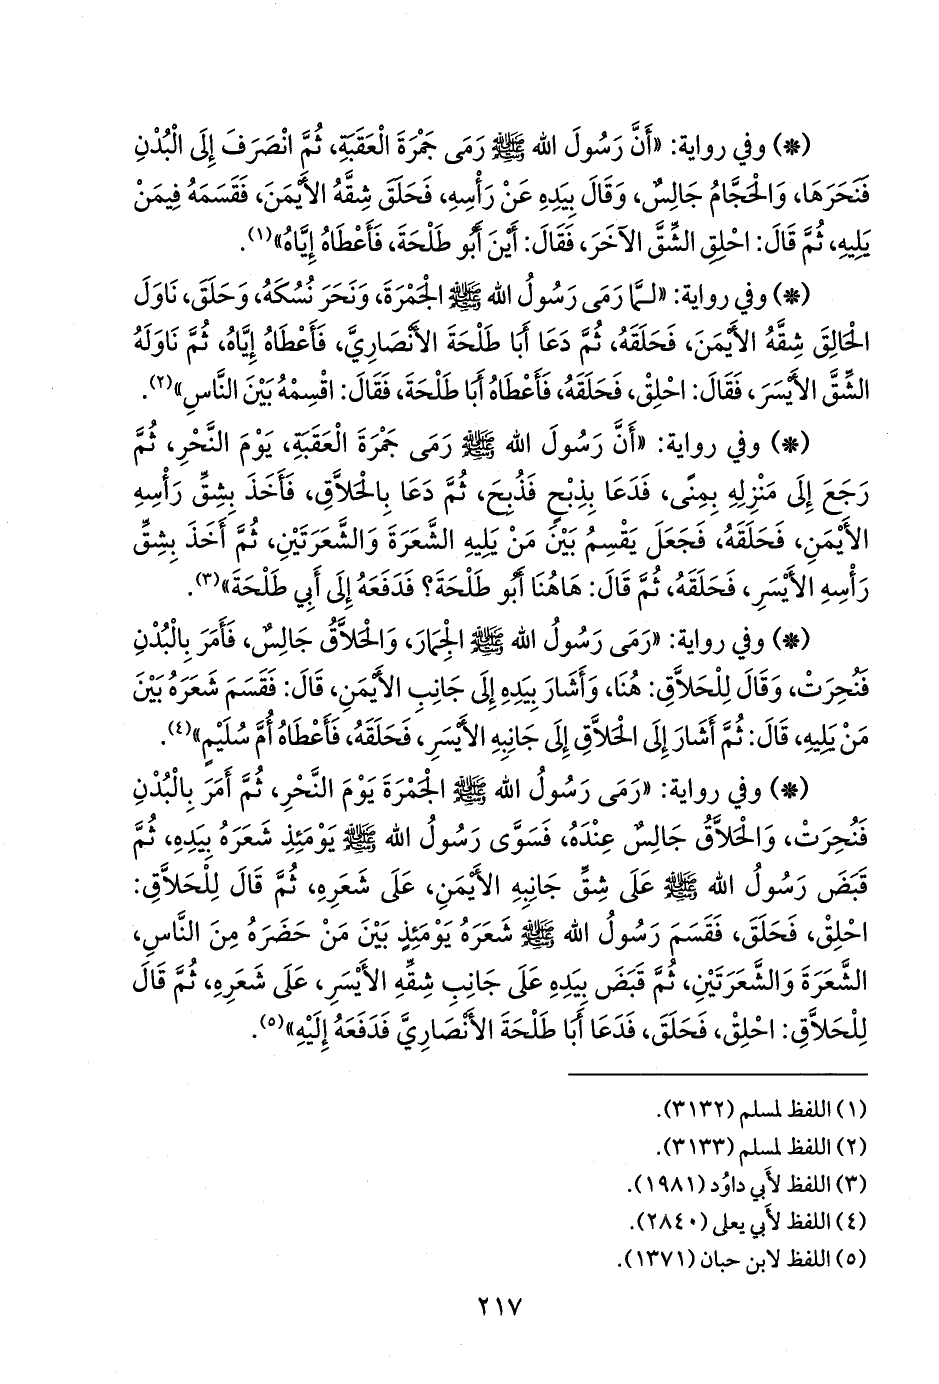 (*) وفي رواية: «أَنَّ رَسُولَ الله ﷺ رَمَى جَمْرَةَ الْعَقَبَةِ، ثُمَّ انْصَرَفَ إِلَى الْبُدْنِ
فَنَحَرَهَا، وَالْحَجَّامُ جَالِسٌ، وَقَالَ بِيَدِهِ عَنْ رَأْسِهِ، فَحَلَقَ شِقَّهُ الأَيْمَنَ، فَقَسَمَهُ فِيمَنْ
يَلِيهِ، ثُمَّ قَالَ: احْلِقِ الشِّقَّ الآخَرَ، فَقَالَ: أَيْنَ أَبُو طَلْحَةَ، فَأَعْطَاهُ إِيَّاهُ»(١).
(*) وفي رواية: «لـمَّا رَمَى رَسُولُ الله ﷺ الْجَمْرَةَ، وَنَحَرَ نُسُكَهُ، وَحَلَقَ، نَاوَلَ
الْحَالِقَ شِقَّهُ الأَيْمَنَ، فَحَلَقَهُ، ثُمَّ دَعَا أَبَا طَلْحَةَ الأَنْصَارِيَّ، فَأَعْطَاهُ إِيَّاهُ، ثُمَّ نَاوَلَهُ
الشِّقَّ الأَيْسَرَ، فَقَالَ: احْلِقْ، فَحَلَقَهُ، فَأَعْطَاهُ أَبَا طَلْحَةَ، فَقَالَ: اقْسِمْهُ بَيْنَ النَّاسِ»(٢).
(*) وفي رواية: «أَنَّ رَسُولَ الله ﷺ رَمَى جَمْرَةَ الْعَقَبَةِ، يَوْمَ النَّحْرِ، ثُمَّ
رَجَعَ إِلَى مَنْزِلِهِ بِمِنًى، فَدَعَا بِذِبْحٍ فَذُبِحَ، ثُمَّ دَعَا بِالْحَلاَّقِ، فَأَخَذَ بِشِقِّ رَأْسِهِ
الأَيْمَنِ، فَحَلَقَهُ، فَجَعَلَ يَقْسِمُ بَيْنَ مَنْ يَلِيهِ الشَّعَرَةَ وَالشَّعَرَتَيْنِ، ثُمَّ أَخَذَ بِشِقِّ
رَأْسِهِ الأَيْسَرِ، فَحَلَقَهُ، ثُمَّ قَالَ: هَاهُنَا أَبُو طَلْحَةَ؟ فَدَفَعَهُ إِلَى أَبِي طَلْحَةَ»(٣).
(*) وفي رواية: «رَمَى رَسُولُ الله ﷺ الْجِمَارَ، وَالْحَلاَّقُ جَالِسٌ، فَأَمَرَ بِالْبُدْنِ
فَنُحِرَتْ، وَقَالَ لِلْحَلاَّقِ: هُنَا، وَأَشَارَ بِيَدِهِ إِلَى جَانِبِ الأَيْمَنِ، قَالَ: فَقَسَمَ شَعَرَهُ بَيْنَ
مَنْ يَلِيهِ، قَالَ: ثُمَّ أَشَارَ إِلَى الْحَلاَّقِ إِلَى جَانِبِهِ الأَيْسَرِ، فَحَلَقَهُ، فَأَعْطَاهُ أُمَّ سُلَيْمٍ»(٤).
(*) وفي رواية: «رَمَى رَسُولُ الله ﷺ الْجَمْرَةَ يَوْمَ النَّحْرِ، ثُمَّ أَمَرَ بِالْبُدْنِ
فَنُحِرَتْ، وَالْحَلاَّقُ جَالِسٌ عِنْدَهُ، فَسَوَّى رَسُولُ الله ﷺ يَوْمَئِذٍ شَعَرَهُ بِيَدِهِ، ثُمَّ
قَبَضَ رَسُولُ الله ﷺ عَلَى شِقِّ جَانِبِهِ الأَيْمَنِ، عَلَى شَعَرِهِ، ثُمَّ قَالَ لِلْحَلاَّقِ:
احْلِقْ، فَحَلَقَ، فَقَسَمَ رَسُولُ الله ﷺ شَعَرَهُ يَوْمَئِذٍ بَيْنَ مَنْ حَضَرَهُ مِنَ النَّاسِ،
الشَّعَرَةَ وَالشَّعَرَتَيْنِ، ثُمَّ قَبَضَ بِيَدِهِ عَلَى جَانِبِ شِقِّهِ الأَيْسَرِ، عَلَى شَعَرِهِ، ثُمَّ قَالَ
لِلْحَلاَّقِ: احْلِقْ، فَحَلَقَ، فَدَعَا أَبَا طَلْحَةَ الأَنْصَارِيَّ فَدَفَعَهُ إِلَيْهِ»(٥).
(١) اللفظ لمسلم (٣١٣٢).
(٢) اللفظ لمسلم (٣١٣٣).
(٣) اللفظ لأَبي داوُد (١٩٨١).
(٤) اللفظ لأَبي يعلى (٢٨٤٠).
(٥) اللفظ لابن حبان (١٣٧١).
٢١٧